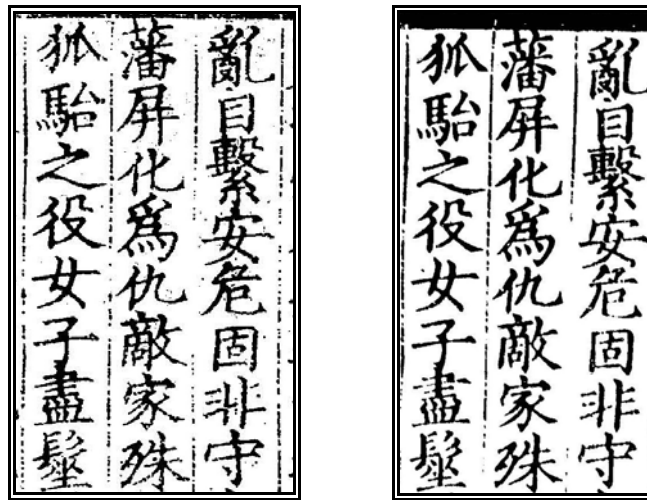 亂目繫安危固非守
藩屏化爲仇敵家殊
狐駘之役女子盡髽
亂目繫安危固非守
藩屏化爲仇敵家殊
狐駘之役女子盡髽